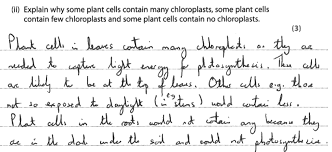 (ii) Explain why some plant cells contain many chloroplasts, some plant cells
contain few chloroplasts and some plant cells contain no chloroplasts.
(3)
Plant cells in leaves contain many chloroplasts as they are
needed to capture light energy for photosynthesis. These cells
are likely to be at the top of leaves. Other cells e.g. those
not so exposed to daylight (eg in stems) would contain less.
Plant cells in the roots would not contain any because they
are in the dark under the soil and could not photosynthesise